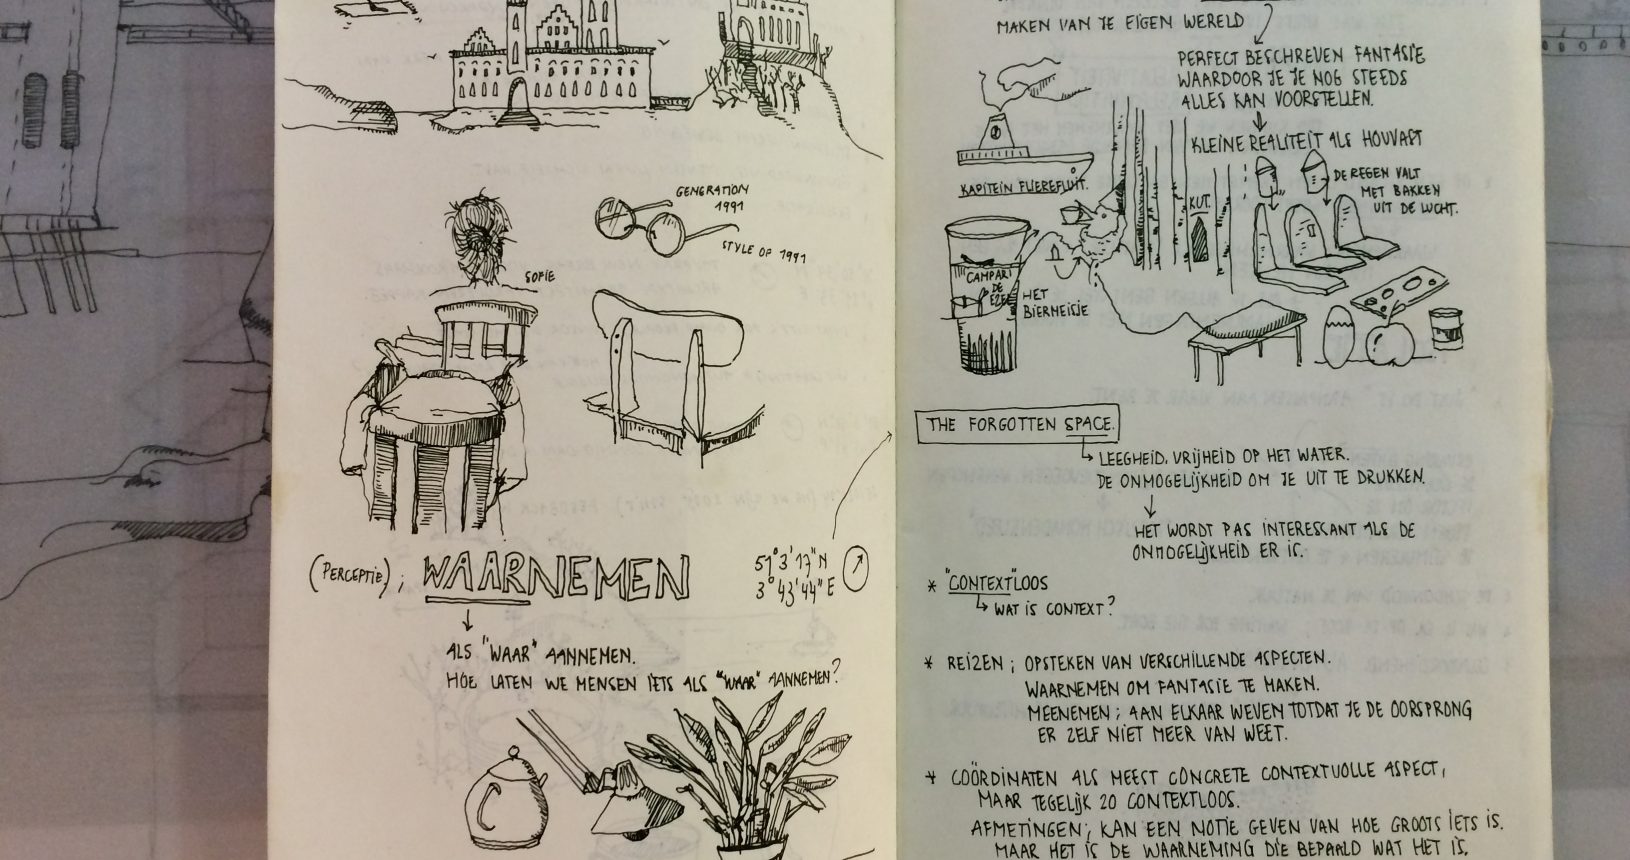 GENGRATION
1991
STYLE OP 1991
SOFIE
(PERCEPTIE) ; WAARNEMEN
51°3'17"N
3°43'44"E
ALS "WAAR" AANNEMEN.
HOE LATEN WE MENSEN IETS ALS "WAAR" AANNEMEN?
MAKEN VAN JE EIGEN WERELD
PERFECT BESCHREVEN FANTASIE
WAARDOOR JE JE NOG STEEDS
ALLES KAN VOORSTELLEN.
KLEINE REALITEIT ALS HOUVAST
KAPITEIN FLIEREFLUIT.
KUT.
DE REGEN VALT
MET BAKKEN
UIT DE LUCHT.
CAMPARI
DE
EZEL
HET
BIERMEISJE
THE FORGOTTEN SPACE.
LEEGHEID. VRIJHEID OP HET WATER.
DE ONMOGELIJKHEID OM JE UIT TE DRUKKEN.
HET WORDT PAS INTERESSANT ALS DE
ONMOGELIJKHEID ER IS.
* "CONTEXT"LOOS
WAT IS CONTEXT?
* REIZEN ; OPSTEKEN VAN VERSCHILLENDE ASPECTEN.
WAARNEMEN OM FANTASIE TE MAKEN.
MEENEMEN ; AAN ELKAAR WEVEN TOTDAT JE DE OORSPRONG
ER ZELF NIET MEER VAN WEET.
* COÖRDINATEN ALS MEEST CONCRETE CONTEXTVOLLE ASPECT,
MAAR TEGELIJK ZO CONTEXTLOOS.
AFMETINGEN ; KAN EEN NOTIE GEVEN VAN HOE GROOTS IETS IS.
MAAR HET IS DE WAARNEMING DIE BEPAALD WAT HET IS.